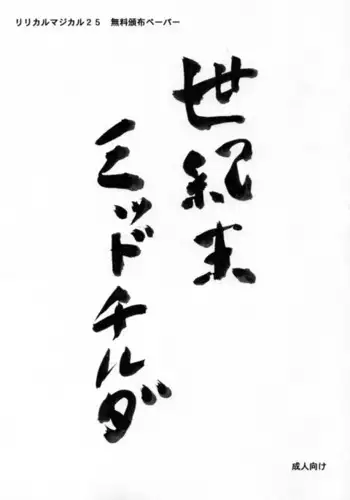 リリカルマジカル25　無料頒布ペーパー
世紀末
ミッドチルダ
成人向け